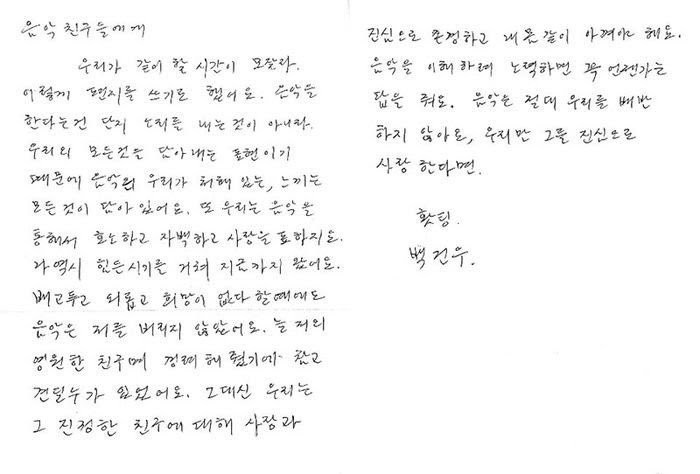 음악 친구들에게
우리가 같이 할 시간이 모잘라
이렇게 편지를 쓰기로 했어요. 음악을
한다는건 단지 소리를 내는것이 아니라
우리의 모든것을 담아내는 표현이기
때문에 음악의 우리가 처해 있는, 느끼는
모든것이 담아 있어요. 또 우리는 음악을
통해서 호소하고 자백하고 사랑을 표하지요.
나 역시 힘든시기를 거쳐 지금까지 왔어요.
배고프고 외롭고 희망이 없다 할때에도
음악은 저를 버리지 않았어요. 늘 저의
영원한 친구며 격려해 줬기에 참고
견딜수가 있었어요. 그대신 우리는
그 진정한 친구에 대해 사랑과
진심으로 존경하고 내몸같이 아껴야 해요.
음악을 이해하려 노력하면 꼭 언젠가는
답을 줘요. 음악은 절대 우리를 배반
하지 않아요, 우리만 그를 진심으로
사랑 한다면.
홧팅.
백건우.